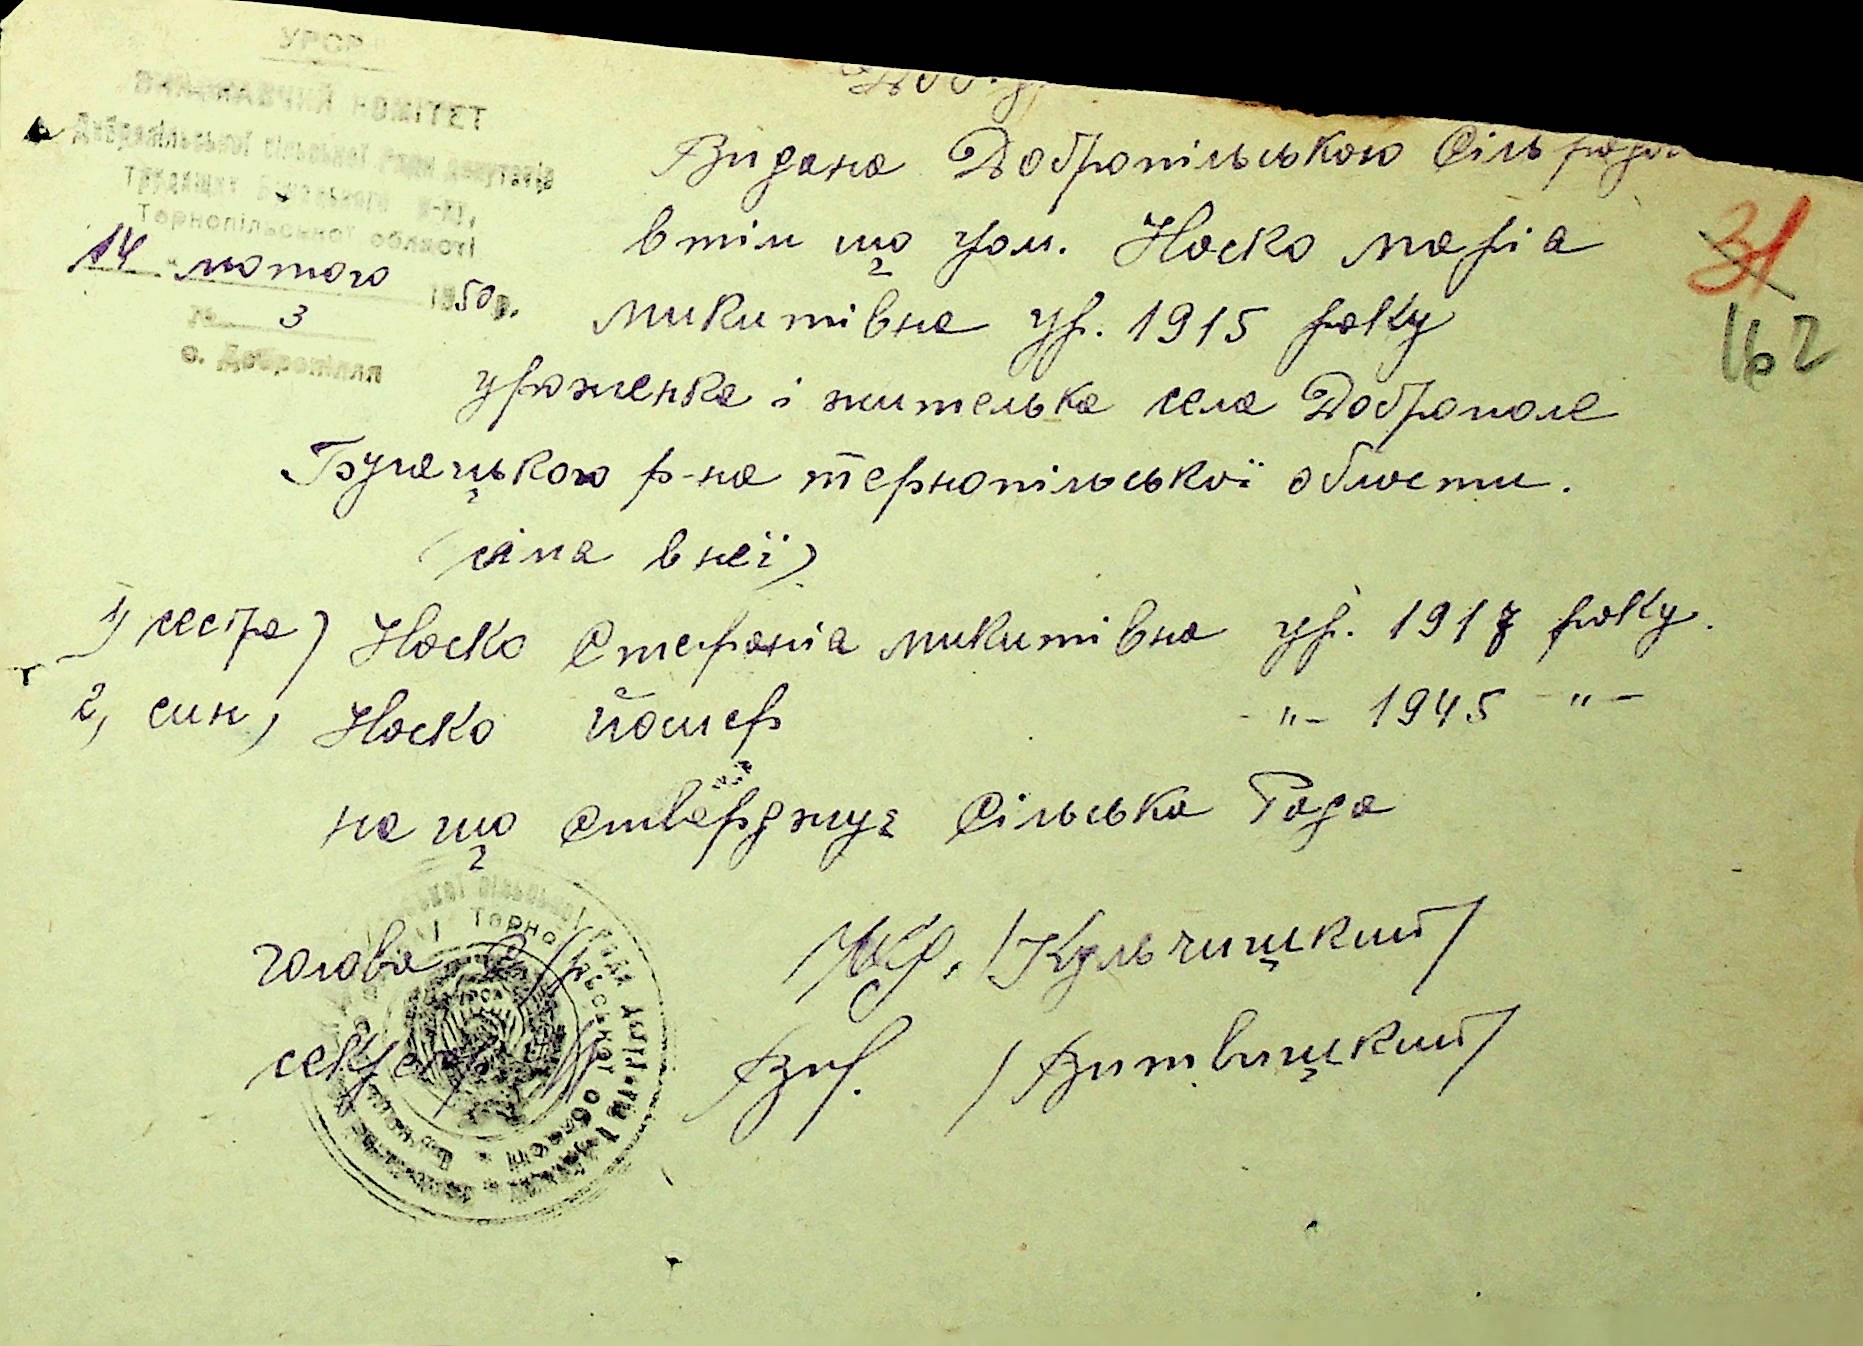 УРСР
ВИКОНАВЧИЙ КОМІТЕТ
Добропільської сільської ради депутатів
Трудящих
Тернопільської області
14 лютого 1950 р.
№ 3
с. Доброполе
Видана Добропільською Сільрадою
втім що гром. Носко марія
микитівна ур. 1915 року
уроженка і жителька села Доброполе
Бучацького р-на тернопільської области.
(сіма внеї)
1) сестра) Носко Стефанія микитівна ур. 1917 року.
2, син, Носко йосиф -"- 1945 -"-
на що стверджує Сільська Рада
голова с/р /Кульчицкий/
секретар /Витвицкий/
31
162